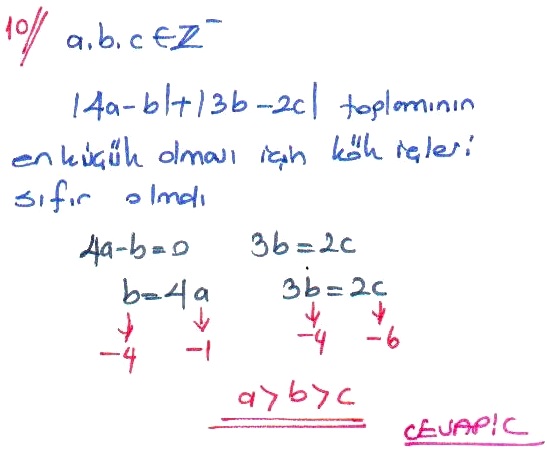 10// a.b.c ∈ Z⁻
|4a-b|+|3b-2c| toplamının
en küçük olması için kök içleri
sıfır olmalı
4a-b=0 3b=2c
b=4a 3b=2c
-4 -1 -4 -6
a>b>c
CEVAP!C